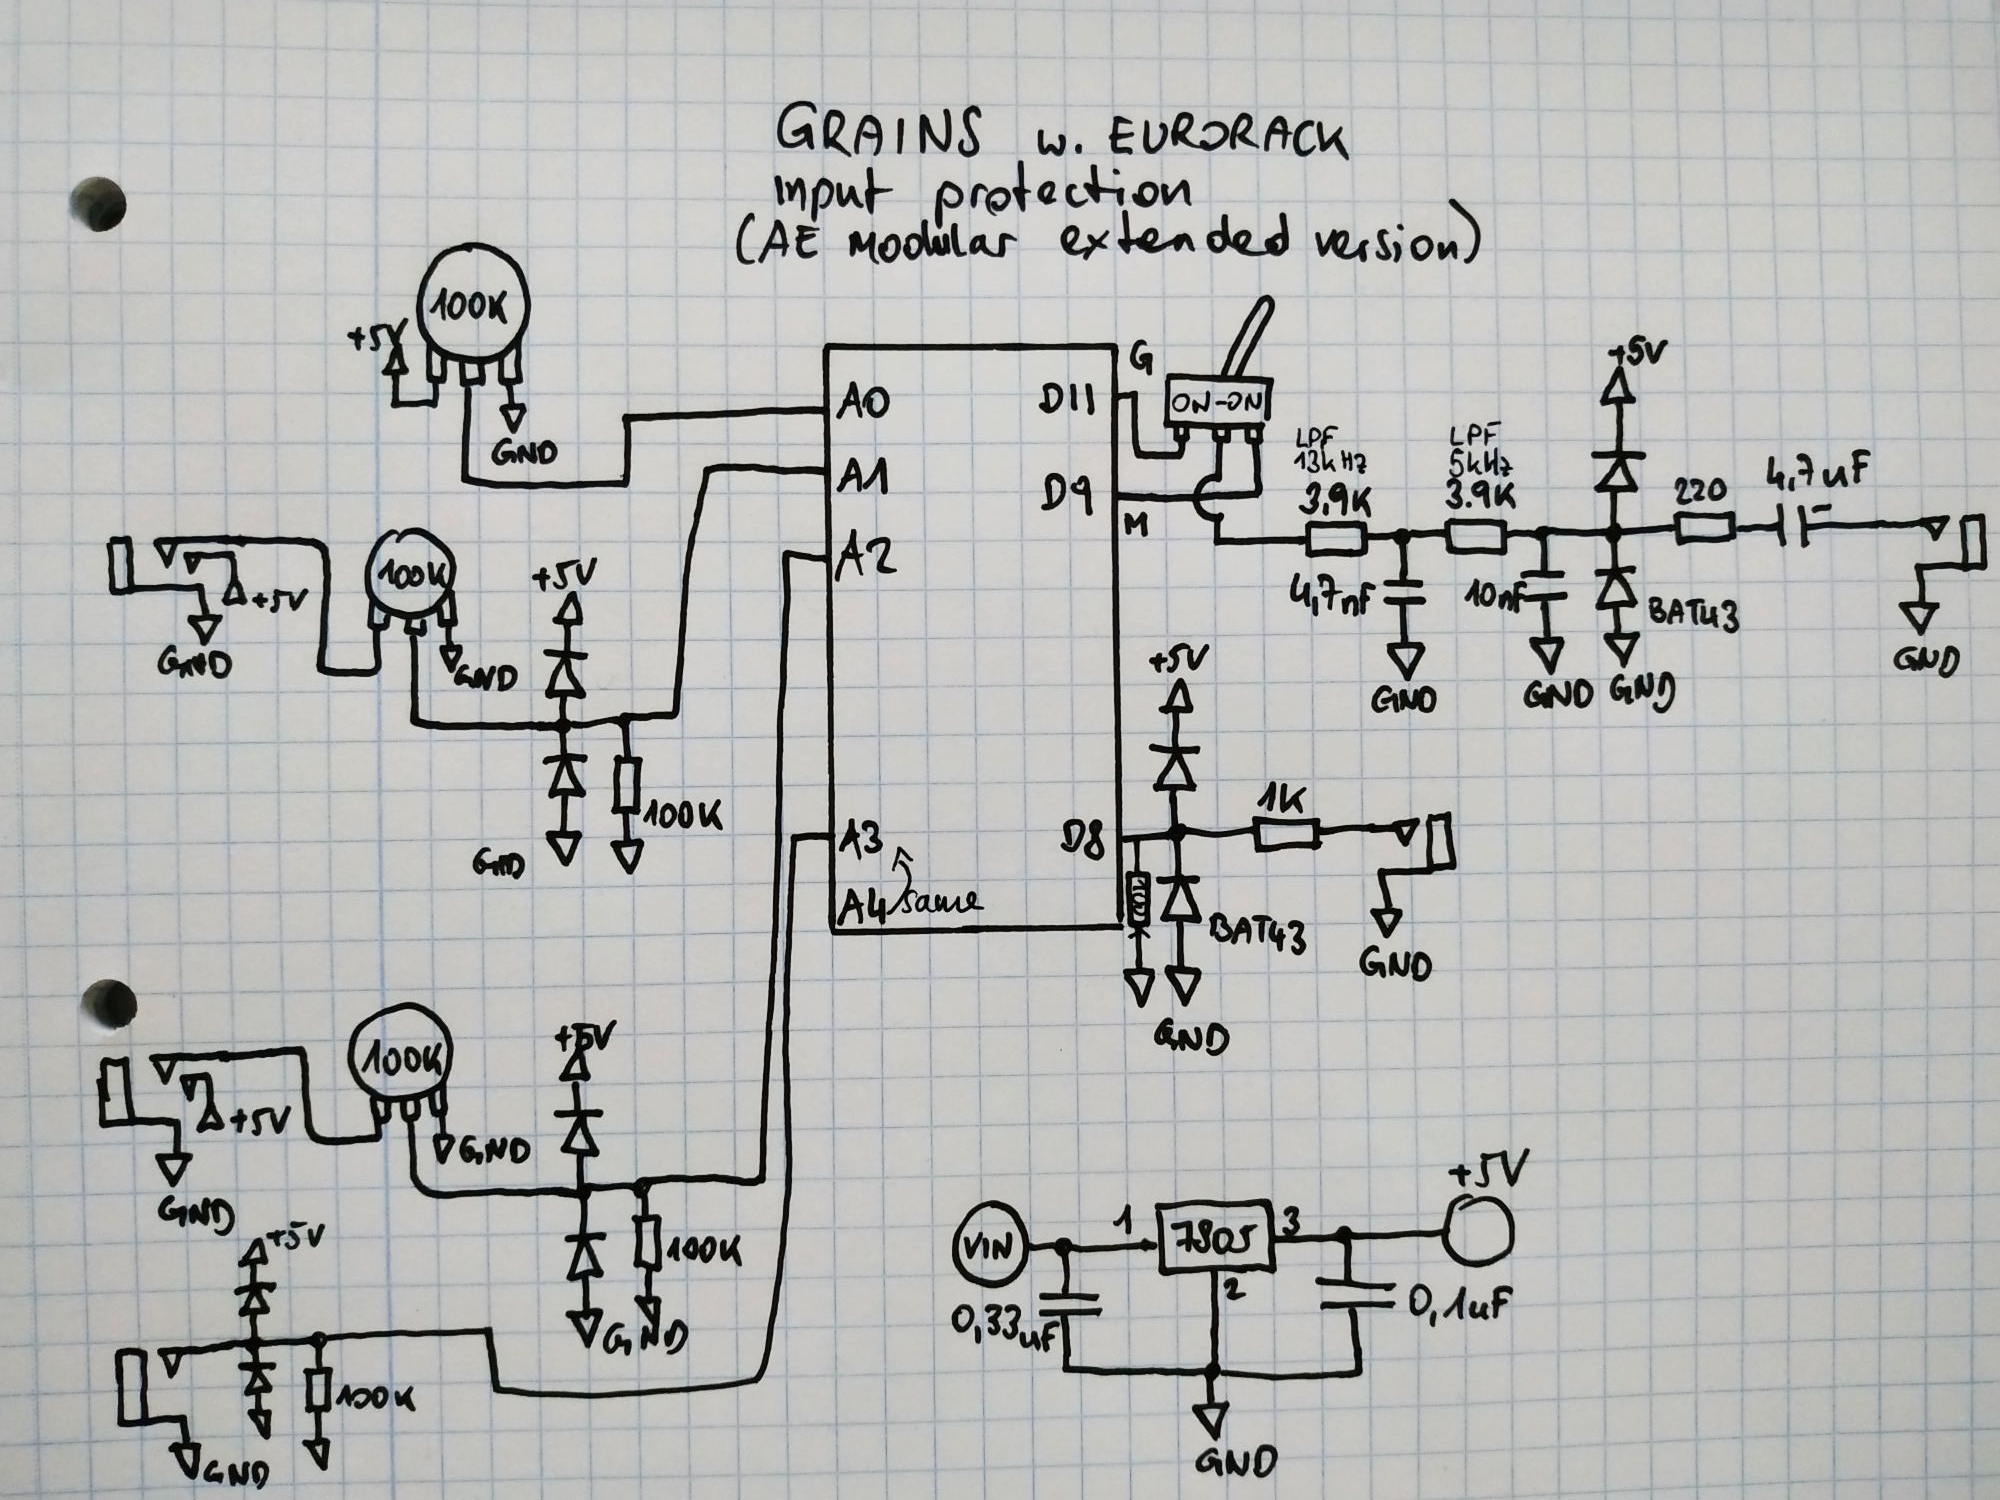 GRAINS w. EURORACK
Input protection
(AE Modular extended version)
100K
+5V
GND
A0
A1
A2
A3
A4 same
D11
D9
D8
G
M
ON-ON
LPF
13kHz
3.9K
LPF
5kHz
3.9K
+5V
220
4,7uF
4,7nF
10nF
BAT43
GND
GND
GND
GND
100K
+5V
GND
GND
+5V
100K
GND
+5V
1K
BAT43
GND
GND
100K
+5V
GND
GND
+5V
100K
GND
+5V
100K
GND
VIN
1
7805
3
2
+5V
0,33uF
0,1uF
GND